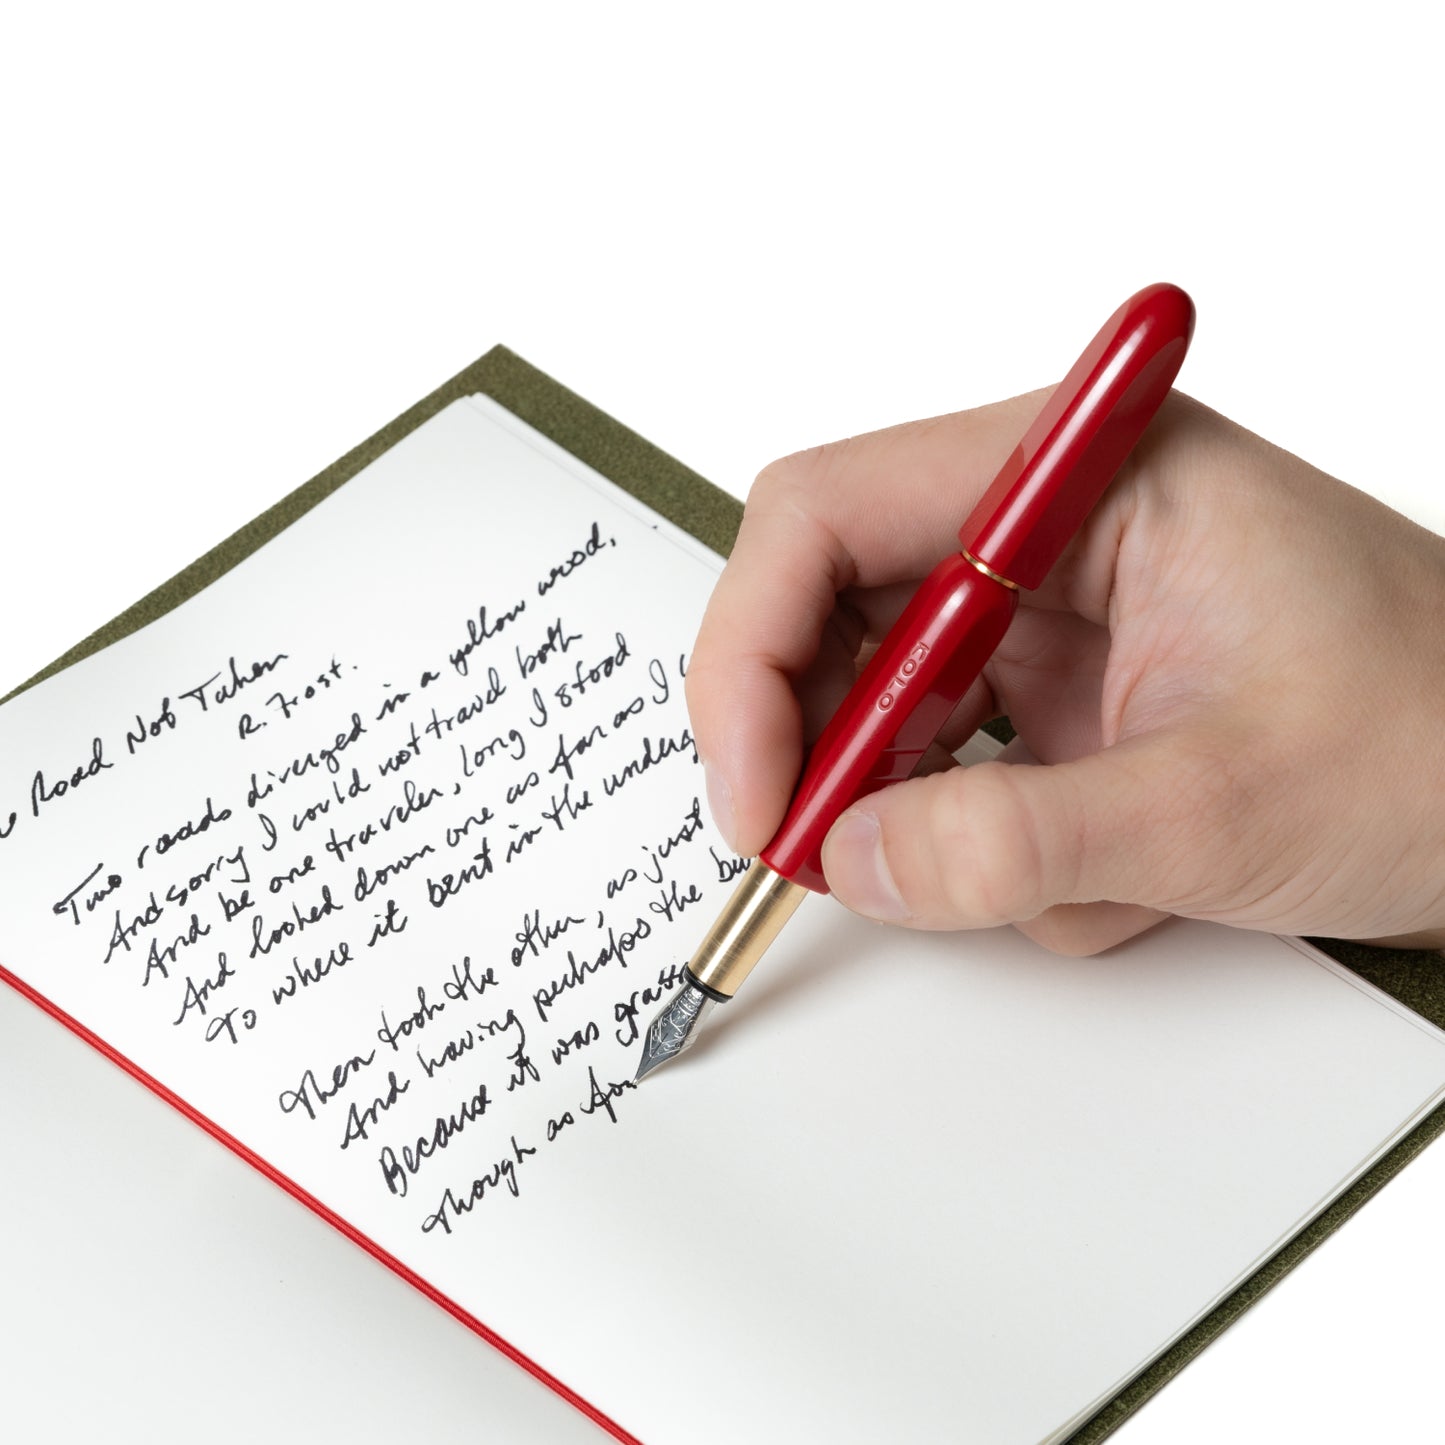 Road Not Taken
R. Frost.
Two roads diverged in a yellow wood,
And sorry I could not travel both
And be one traveler, long I stood
And looked down one as far as I c
To where it bent in the underg
Then took the other, as just
And having perhaps the be
Because it was grass
Though as for
KOLO